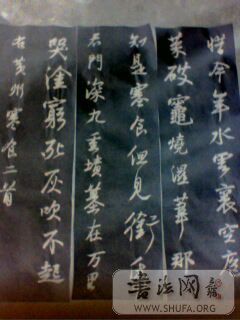 今年水雲裏空庖
菜破竈燒濕葦那
知是寒食但見銜
君門深九重墳墓在万里
哭塗窮死灰吹不起
右黄州寒食二首
書法网
WWW.SHUFA.ORG